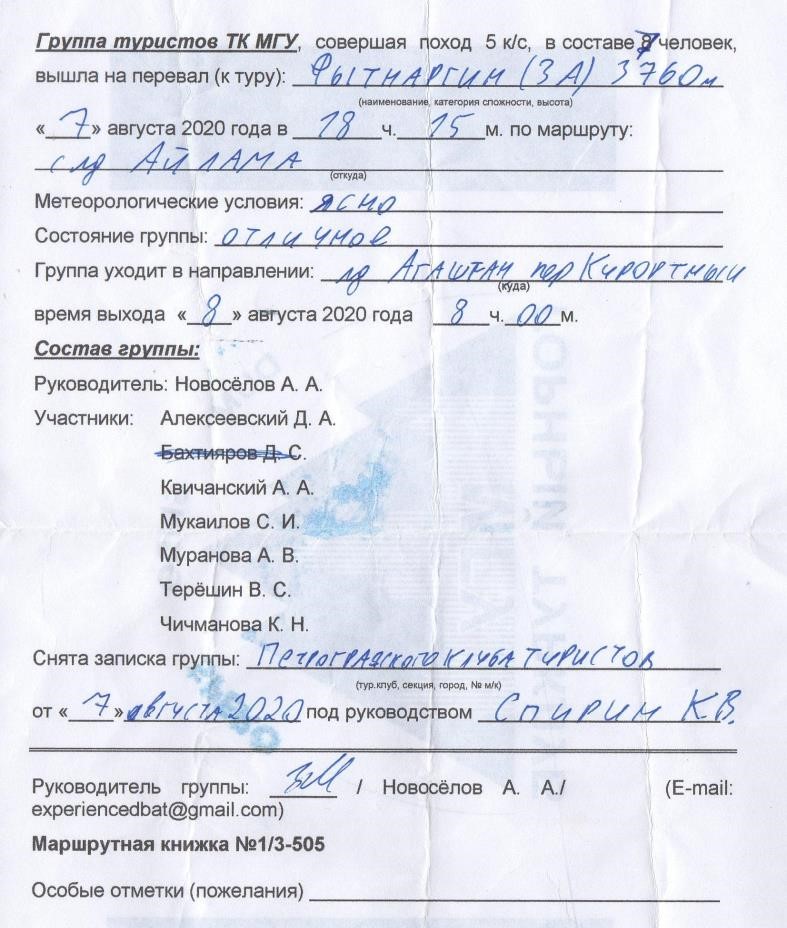 Группа туристов ТК МГУ, совершая поход 5 к/с, в составе 7 человек,
вышла на перевал (к туру): Фытнаргин (3А) 3760м
(наименование, категория сложности, высота)
«7» августа 2020 года в 18 ч. 15 м. по маршруту:
с лд Айлама
(откуда)
Метеорологические условия: ясно
Состояние группы: отличное
Группа уходит в направлении: лд Агаштан пер Курортный
(куда)
время выхода «8» августа 2020 года 8 ч. 00 м.
Состав группы:
Руководитель: Новосёлов А. А.
Участники: Алексеевский Д. А.
Бахтияров Д. С.
Квичанский А. А.
Мукаилов С. И.
Муранова А. В.
Терёшин В. С.
Чичманова К. Н.
Снята записка группы: Петроградского клуба туристов
(тур.клуб, секция, город, № м/к)
от «7» августа 2020 под руководством Спирин К.В.
Руководитель группы: / Новосёлов А. А./ (E-mail:
experiencedbat@gmail.com)
Маршрутная книжка №1/3-505
Особые отметки (пожелания)